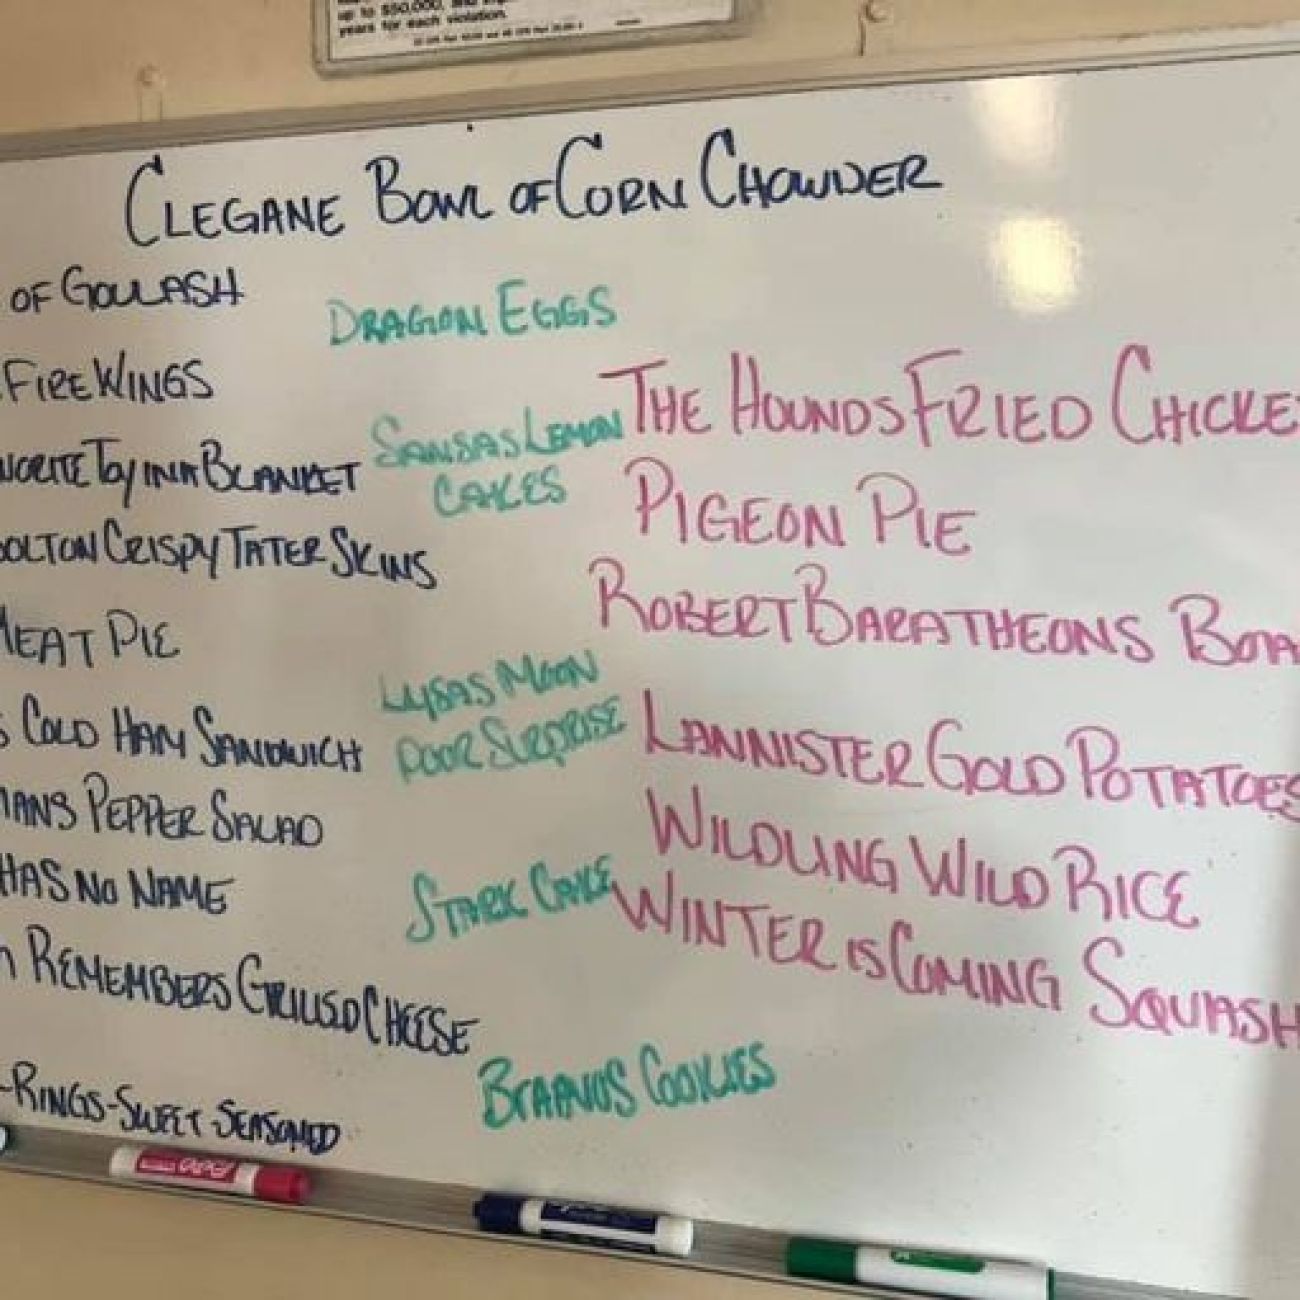 up to $50,000, and
years for each violation.
CLEGANE BOWL OF CORN CHOWDER
OF GOULASH
DRAGON EGGS
FIRE WINGS
THE HOUNDS FRIED CHICKE
SANSAS LEMON
CAKES
VORITE TOY IN A BLANKET
PIGEON PIE
OLTON CRISPY TATER SKINS
ROBERT BARATHEONS BOA
MEAT PIE
LYSAS MOON
DOOR SURPRISE
S COLD HAM SANDWICH
LANNISTER GOLD POTATOES
MANS PEPPER SALAD
WILDLING WILD RICE
HAS NO NAME
STARK CAKE
WINTER IS COMING SQUASH
H REMEMBERS GRILLED CHEESE
BRAAVOS COOKIES
-RINGS-SWEET-SEASONED
EXPO